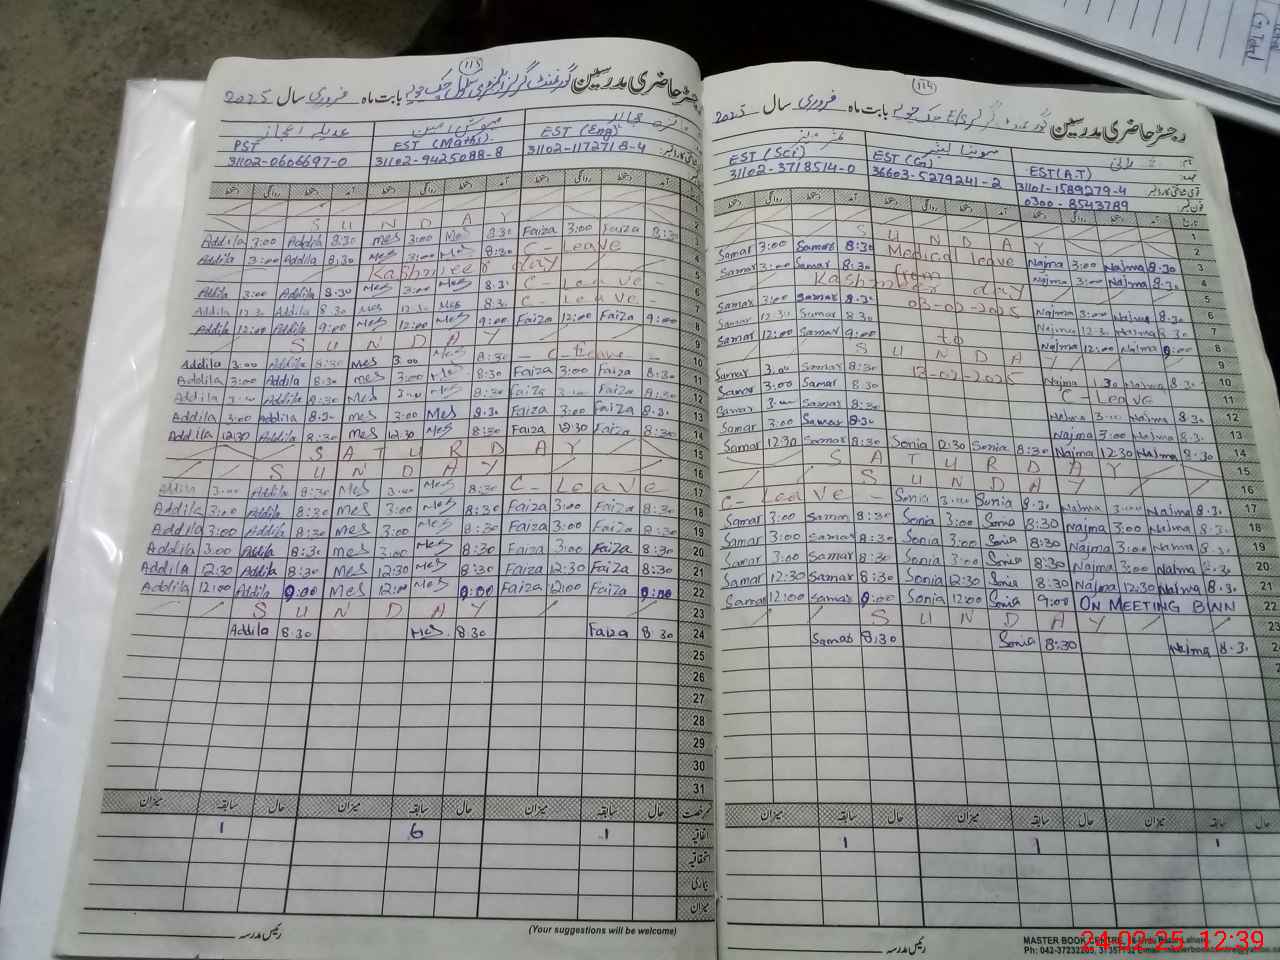 115
رجسٹر حاضری مدرسین گورنمنٹ گرلز بابت ماہ فروری سال 2025
PST EST (Maths) EST (Eng)
31102-0606697-0 31102-9425088-8 31102-1172718-4
S U N D A Y
Addila 3:00 Addila 8:30 Mes 3:00 Mes 8:30 Faiza 3:00 Faiza 8:30 3
Addila 3:00 Addila 8:30 Mes 3:00 Mes 8:30 C - Leave 4
Kashmeer day 5
Addila 3:00 Addila 8:30 Mes 3:00 Mes 8:3. C - Leave - 6
Addila 12:30 Addila 8:30 Mes 12:30 Mes 8:3. C - Leave - 7
Addila 12:00 Addila 9:00 Mes 12:00 Mes 9:00 Faiza 12:00 Faiza 9:00 8
S U N D A Y 9
Addila 3:00 Addila 8:30 Mes 3:00 Mes 8:30 - C-Leave - 10
Addila 3:00 Addila 8:30 Mes 3:00 Mes 8:30 Faiza 3:00 Faiza 8:30 11
Addila 3:00 Addila 8:30 Mes 3:00 Mes 8:30 Faiza 3:00 Faiza 8:30 12
Addila 3:00 Addila 8:30 Mes 3:00 Mes 8:30 Faiza 3:00 Faiza 8:30 13
Addila 12:30 Addila 8:30 Mes 12:30 Mes 8:30 Faiza 12:30 Faiza 8:30 14
S A T U R D A Y 15
S U N D A Y 16
Addila 3:00 Addila 8:30 Mes 3:00 Mes 8:30 C - Leave 17
Addila 3:00 Addila 8:30 Mes 3:00 Mes 8:30 Faiza 3:00 Faiza 8:30 18
Addila 3:00 Addila 8:30 Mes 3:00 Mes 8:30 Faiza 3:00 Faiza 8:30 19
Addila 3:00 Addila 8:30 Mes 3:00 Mes 8:30 Faiza 3:00 Faiza 8:30 20
Addila 12:30 Addila 8:30 Mes 12:30 Mes 8:30 Faiza 12:30 Faiza 8:30 21
Addila 12:00 Addila 9:00 Mes 12:00 Mes 9:00 Faiza 12:00 Faiza 9:00 22
S U N D A Y 23
Addila 8:30 Mes 8:30 Faiza 8:30 24
25
26
27
28
29
30
31
رخصت حال سابقہ میزان حال سابقہ میزان حال سابقہ میزان
اتفاقیہ 1 6 1
استحقاقیہ
بیماری
میزان
رئیس مدرسہ
(Your suggestions will be welcome)
114
رجسٹر حاضری مدرسین بابت ماہ فروری سال 2025
EST (Sci) EST (G) EST (A.T)
31102-3718514-0 36603-5279241-2 31101-1589279-4
0300-8543789
1
S U N D A Y 2
Samar 3:00 Samar 8:30 Medical leave Najma 3:00 Najma 8:30 3
Samar 3:00 Samar 8:30 from Najma 3:00 Najma 8:30 4
Kashmeer day 5
Samar 3:00 Samar 8:30 03-02-2025 Najma 3:00 Najma 8:30 6
Samar 12:30 Samar 8:30 Najma 12:30 Najma 8:30 7
Samar 12:00 Samar 9:00 to Najma 12:00 Najma 9:00 8
S U N D A Y 9
Samar 3:00 Samar 8:30 12-02-2025 Najma Najma 8:30 10
Samar 3:00 Samar 8:30 C - Leave 11
Samar 3:00 Samar 8:30 Najma 3:00 Najma 8:30 12
Samar 3:00 Samar 8:30 Najma 3:00 Najma 8:30 13
Samar 12:30 Samar 8:30 Sonia 12:30 Sonia 8:30 Najma 12:30 Najma 8:30 14
S A T U R D A Y 15
S U N D A Y 16
C - Leave - Sonia 3:00 Sonia 8:30 Najma 3:00 Najma 8:30 17
Samar 3:00 Samar 8:30 Sonia 3:00 Sonia 8:30 Najma 3:00 Najma 8:30 18
Samar 3:00 Samar 8:30 Sonia 3:00 Sonia 8:30 Najma 3:00 Najma 8:30 19
Samar 3:00 Samar 8:30 Sonia 3:00 Sonia 8:30 Najma 3:00 Najma 8:30 20
Samar 12:30 Samar 8:30 Sonia 12:30 Sonia 8:30 Najma 12:30 Najma 8:30 21
Samar 12:00 Samar 9:00 Sonia 12:00 Sonia 9:00 ON MEETING BWN 22
S U N D A Y 23
Samar 8:30 Sonia 8:30 Najma 8:30
حال سابقہ میزان حال سابقہ میزان حال سابقہ میزان
1 1 1
رئیس مدرسہ
MASTER BOOK CENTRE
Ph: 042-37232205
24.02.25 12:39